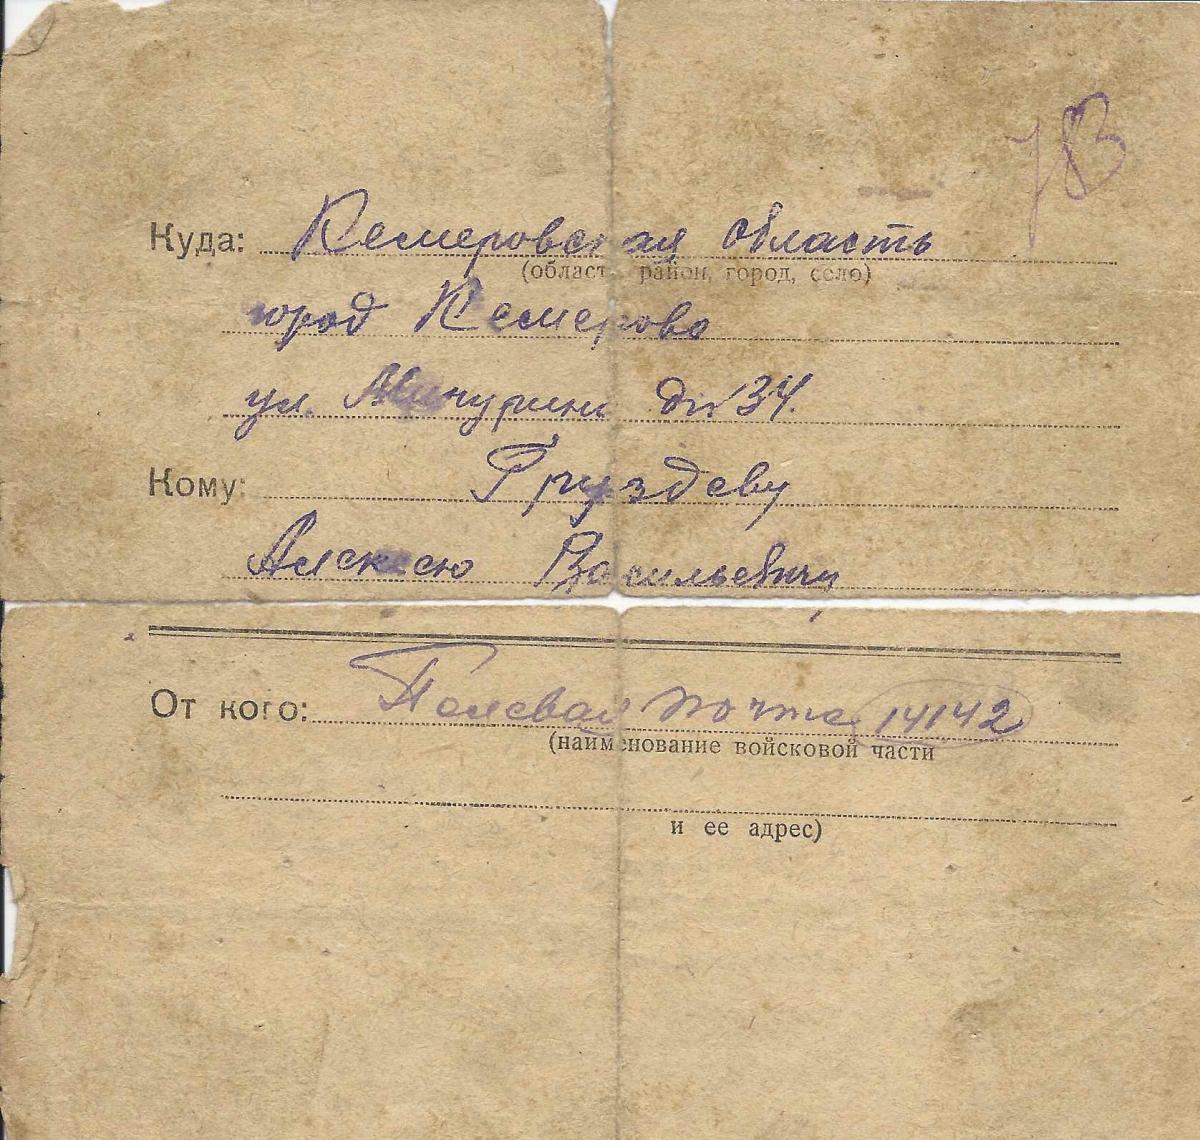 783
Куда: Кемеровская область
(область, район, город, село)
город Кемерово
ул. Мичурина д№ 34.
Кому: Груздеву
Алексею Васильевичу
От кого: Полевая почта 14142
(наименование войсковой части
и ее адрес)